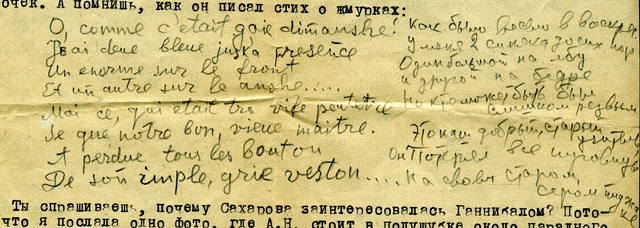 очек. А помнишь, как он писал стих о жмурках:
О, comme c'était gaie dimanshe!
J'ai deue bleue juska presence
Un enorme sur le front
Et un autre sur le anshe.....
Mai ce, qui etait tra vife
Se que notre bon, vieue maitre.
A perdue tous les bouton
De son imple, grie veston....
как было весело в
у меня 2 синяка
Один большой на лбу
и другой на бедре
Но кто может быть был
слишком резвым
Это наш добрый, старый
Он потерял все пуговицы
на своем старом,
сером пиджа
ке
Ты спрашиваешь, почему Сахарова заинтересовалась Ганнибалом? Пото-
что я послала одно фото, где А.Н. стоит в полушубке около парадного